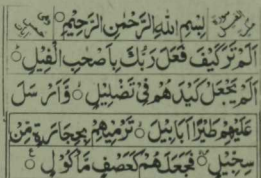 بِسْمِ اللهِ الرَّحْمٰنِ الرَّحِيْمِ
اَلَمْ تَرَ كَيْفَ فَعَلَ رَبُّكَ بِاَصْحٰبِ الْفِيْلِ ۝
اَلَمْ يَجْعَلْ كَيْدَهُمْ فِيْ تَضْلِيْلٍ ۝ وَّاَرْسَلَ
عَلَيْهِمْ طَيْرًا اَبَابِيْلَ ۝ تَرْمِيْهِمْ بِحِجَارَةٍ مِّنْ
سِجِّيْلٍ ۝ فَجَعَلَهُمْ كَعَصْفٍ مَّاْكُوْلٍ ۝